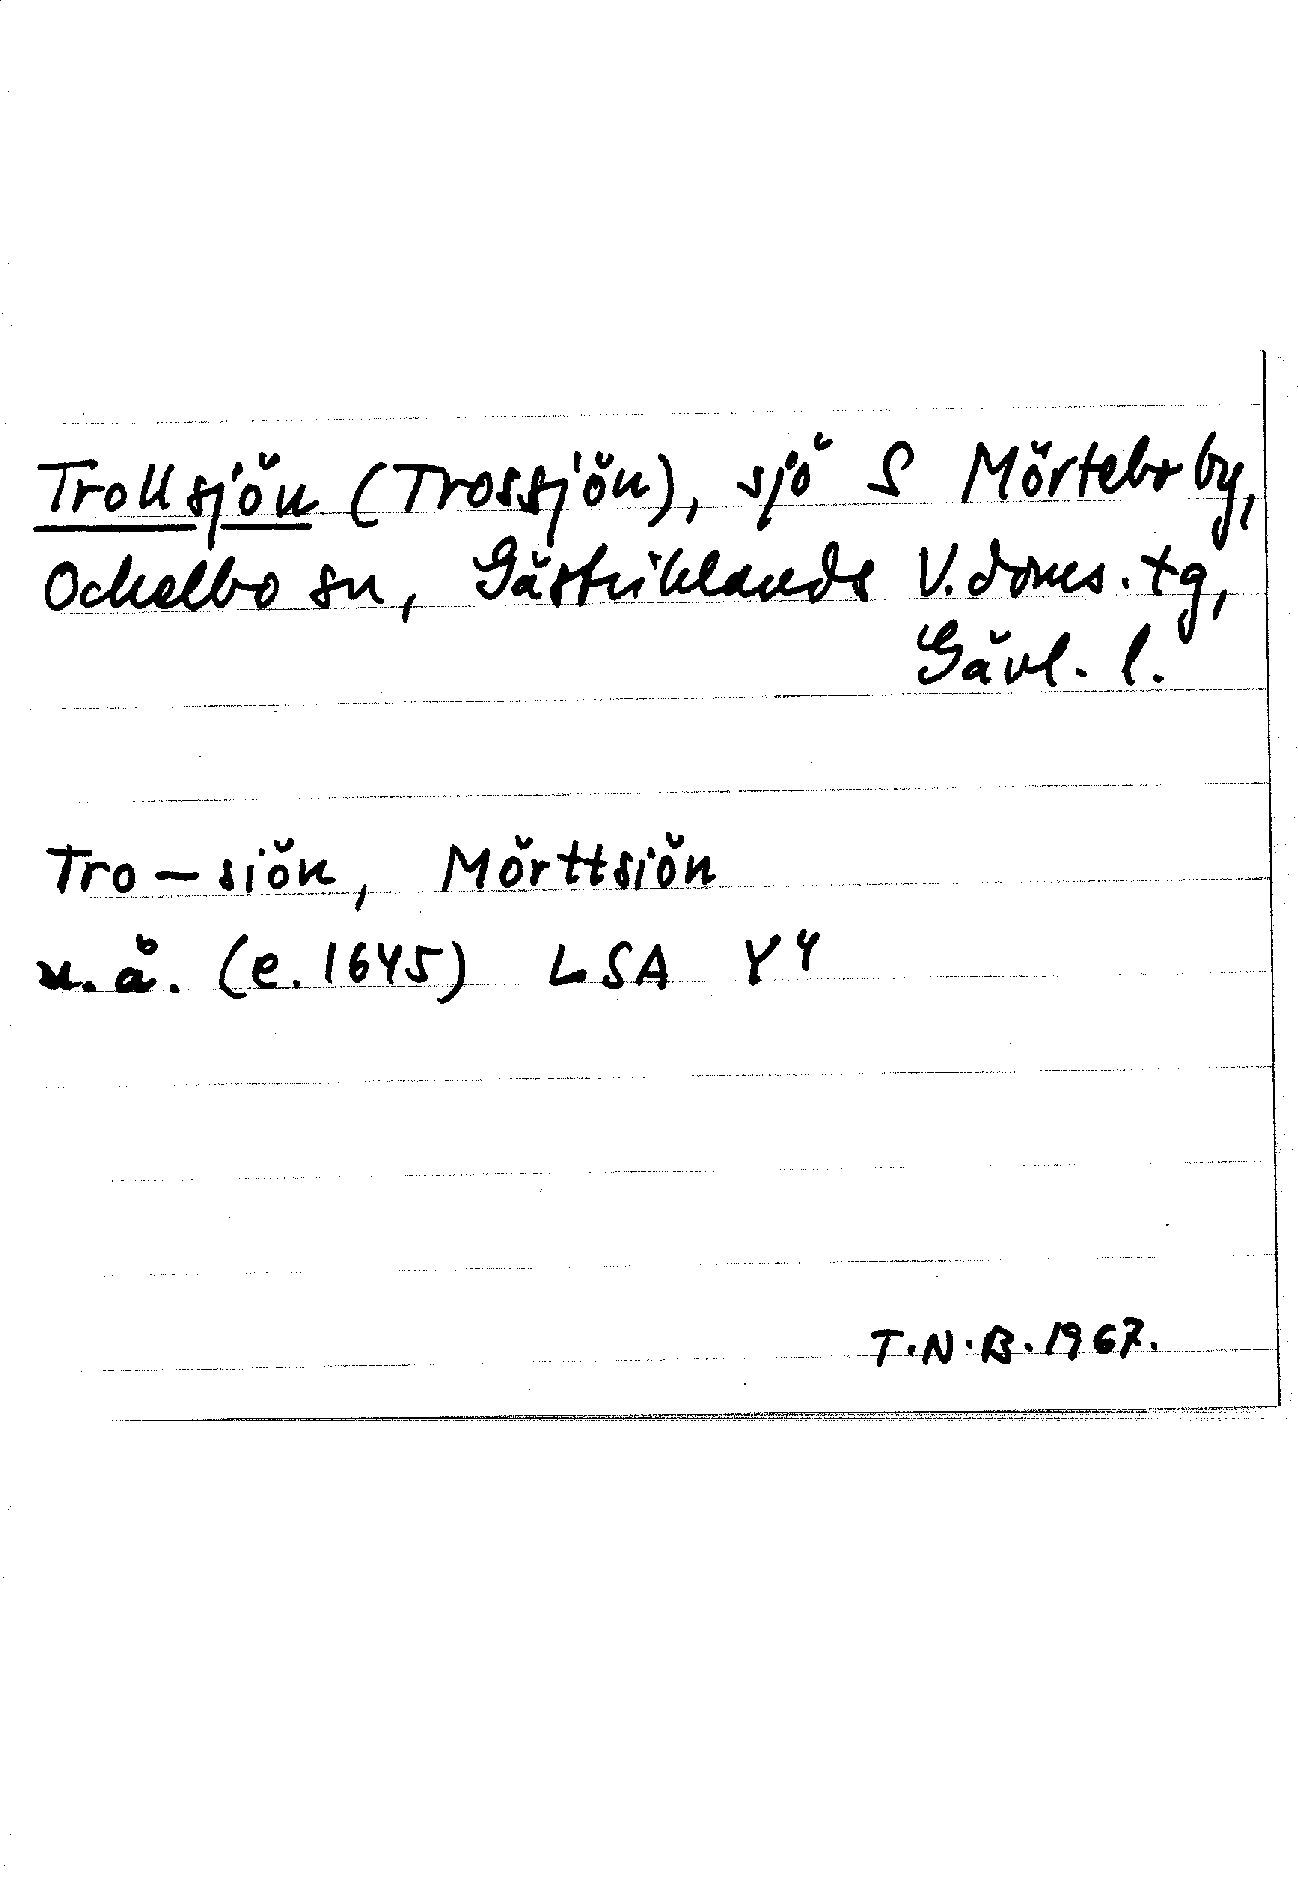 Trollsjön (Trossjön), sjö S Mörtebo by,
Ockelbo sn, Gästriklands V. doms. tg,
Gävl. l.
Tro-siön, Mörttsiön
u.å. (e. 1645) LSA Y4
T.N.B. 1967.